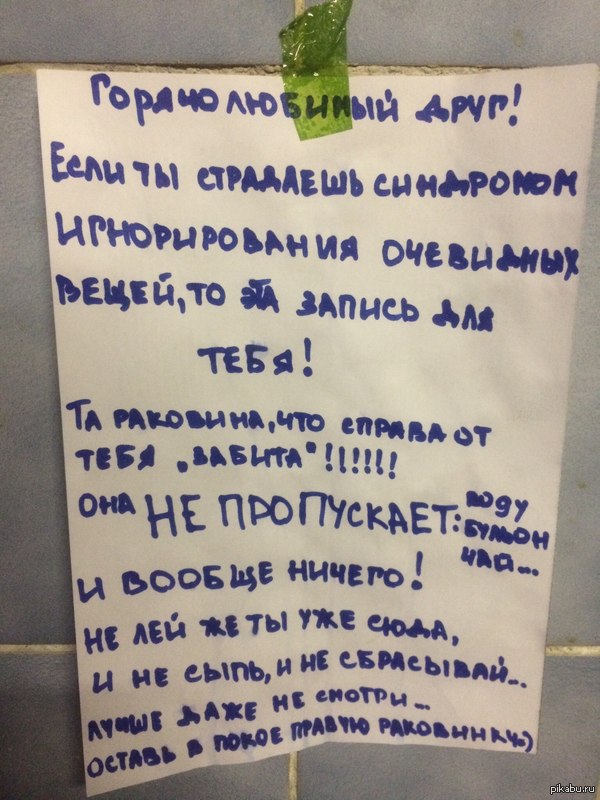 Горячо любимый друг!
Если ты страдаешь синдромом
игнорирования очевидных
вещей, то эта запись для
тебя!
Та раковина, что справа от
тебя „забита"!!!!!!
она НЕ ПРОПУСКАЕТ: воду
бульон
чай...
и вообще ничего!
не лей же ты уже сюда,
и не сыпь, и не сбрасывай...
лучше даже не смотри...
оставь в покое правую раковинку:)
pikabu.ru